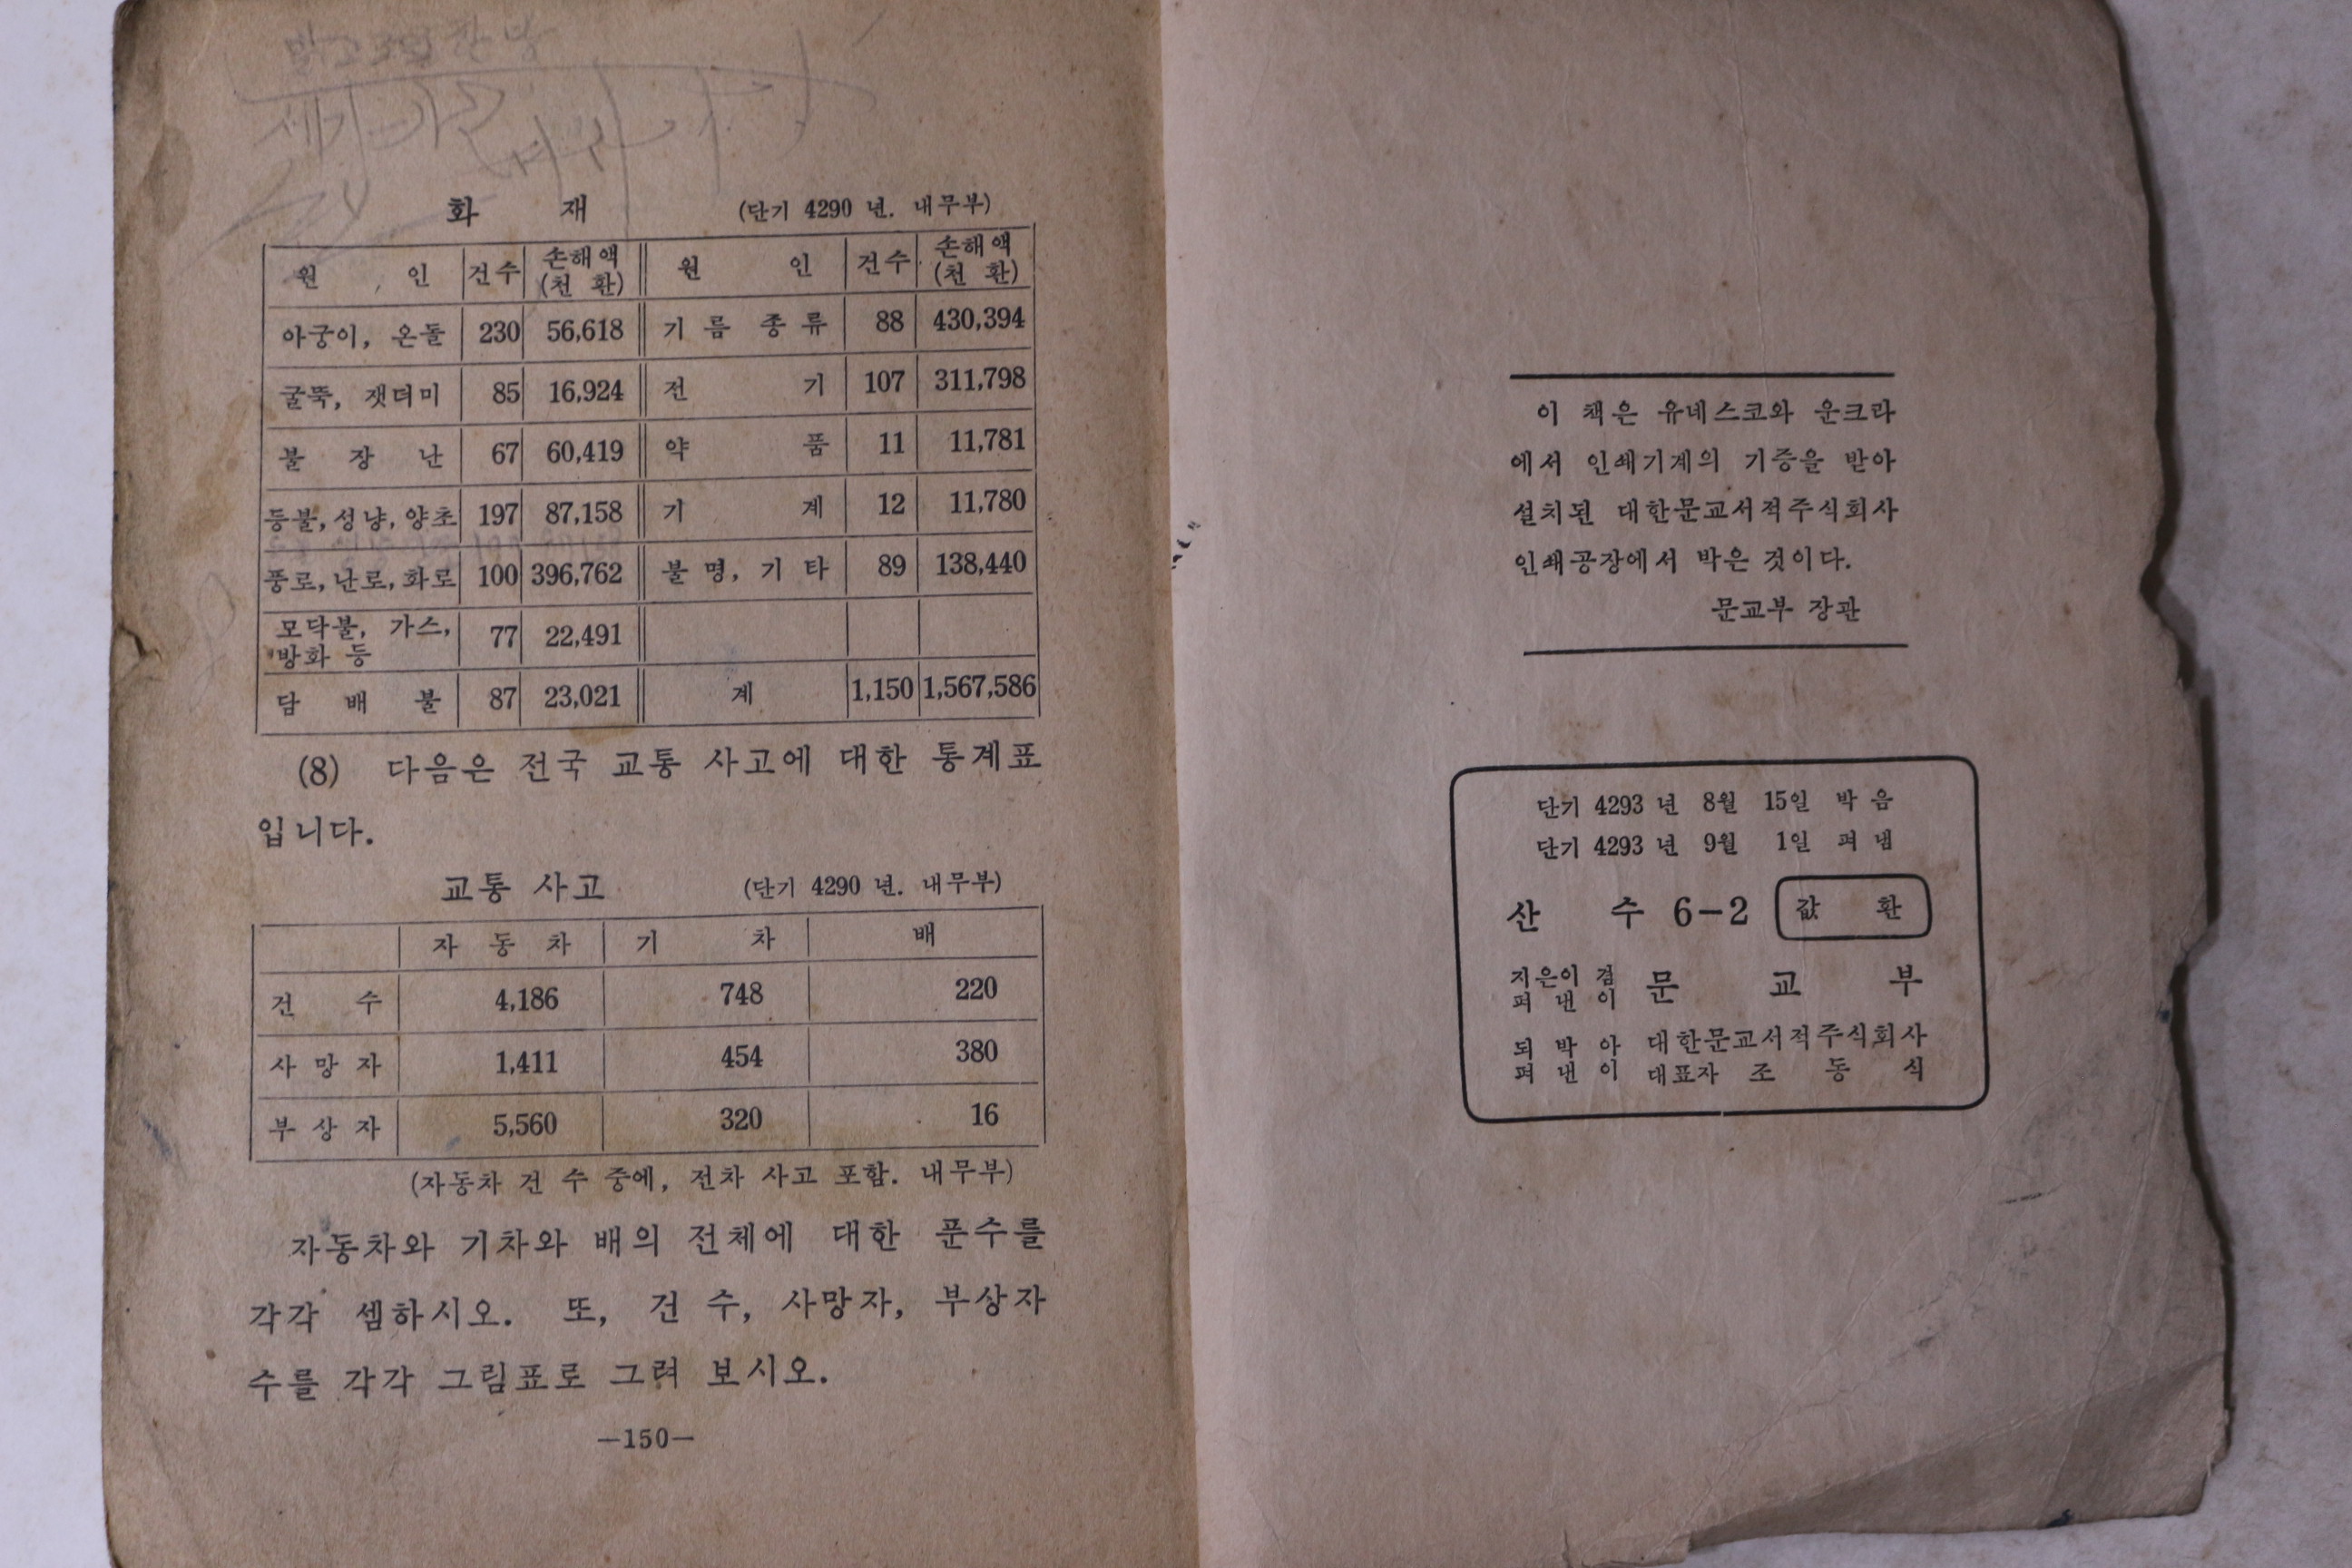 화 재 (단기 4290 년. 내무부)
원 인 건수 손해액 (천 환) 원 인 건수 손해액 (천 환)
아궁이, 온돌 230 56,618 기 름 종 류 88 430,394
굴뚝, 잿더미 85 16,924 전 기 107 311,798
불 장 난 67 60,419 약 품 11 11,781
등불, 성냥, 양초 197 87,158 기 계 12 11,780
풍로, 난로, 화로 100 396,762 불 명, 기 타 89 138,440
모닥불, 가스, 방화 등 77 22,491
담 배 불 87 23,021 계 1,150 1,567,586
(8) 다음은 전국 교통 사고에 대한 통계표
입니다.
교통 사고 (단기 4290 년. 내무부)
자 동 차 기 차 배
건 수 4,186 748 220
사 망 자 1,411 454 380
부 상 자 5,560 320 16
(자동차 건 수 중에, 전차 사고 포함. 내무부)
자동차와 기차와 배의 전체에 대한 푼수를
각각 셈하시오. 또, 건 수, 사망자, 부상자
수를 각각 그림표로 그려 보시오.
—150—
이 책은 유네스코와 운크라
에서 인쇄기계의 기증을 받아
설치된 대한문교서적주식회사
인쇄공장에서 박은 것이다.
문교부 장관
단기 4293 년 8월 15일 박 음
단기 4293 년 9월 1일 펴 냄
산 수 6-2 값 환
지은이 겸
펴 낸 이 문 교 부
되 박 아 대한문교서적주식회사
펴 낸 이 대표자 조 동 식